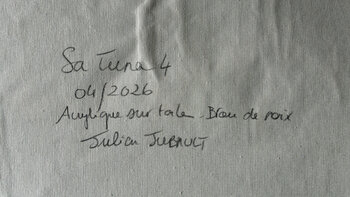 Sa Tuna 4
04/2026
Acrylique sur toile. Brou de noix
Julien JUBAULT